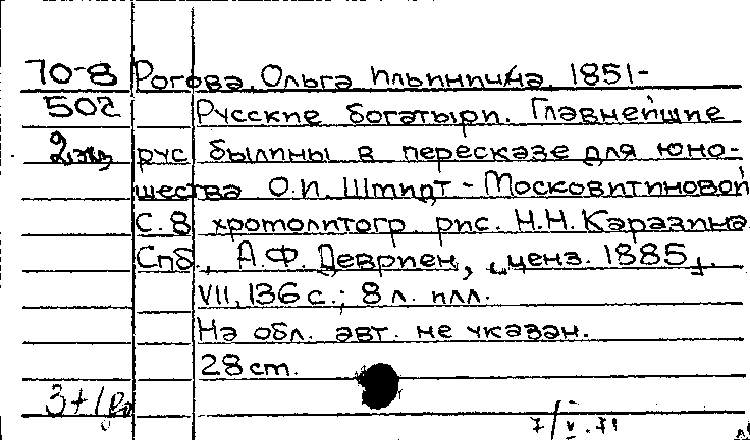 70-8 Рогова, Ольга Ильинична, 1851-
502 Русские богатыри. Главнейшие
2 экз рус былины в пересказе для юно-
шества О.И. Шмидт-Московитиновой
С. 8 хромолитогр. рис. Н.Н. Каразина
Спб., А.Ф. Девриен, „ценз. 1885„.
VII, 136 с.; 8 л. илл.
На обл. авт. не указан.
28 cm.
3+1